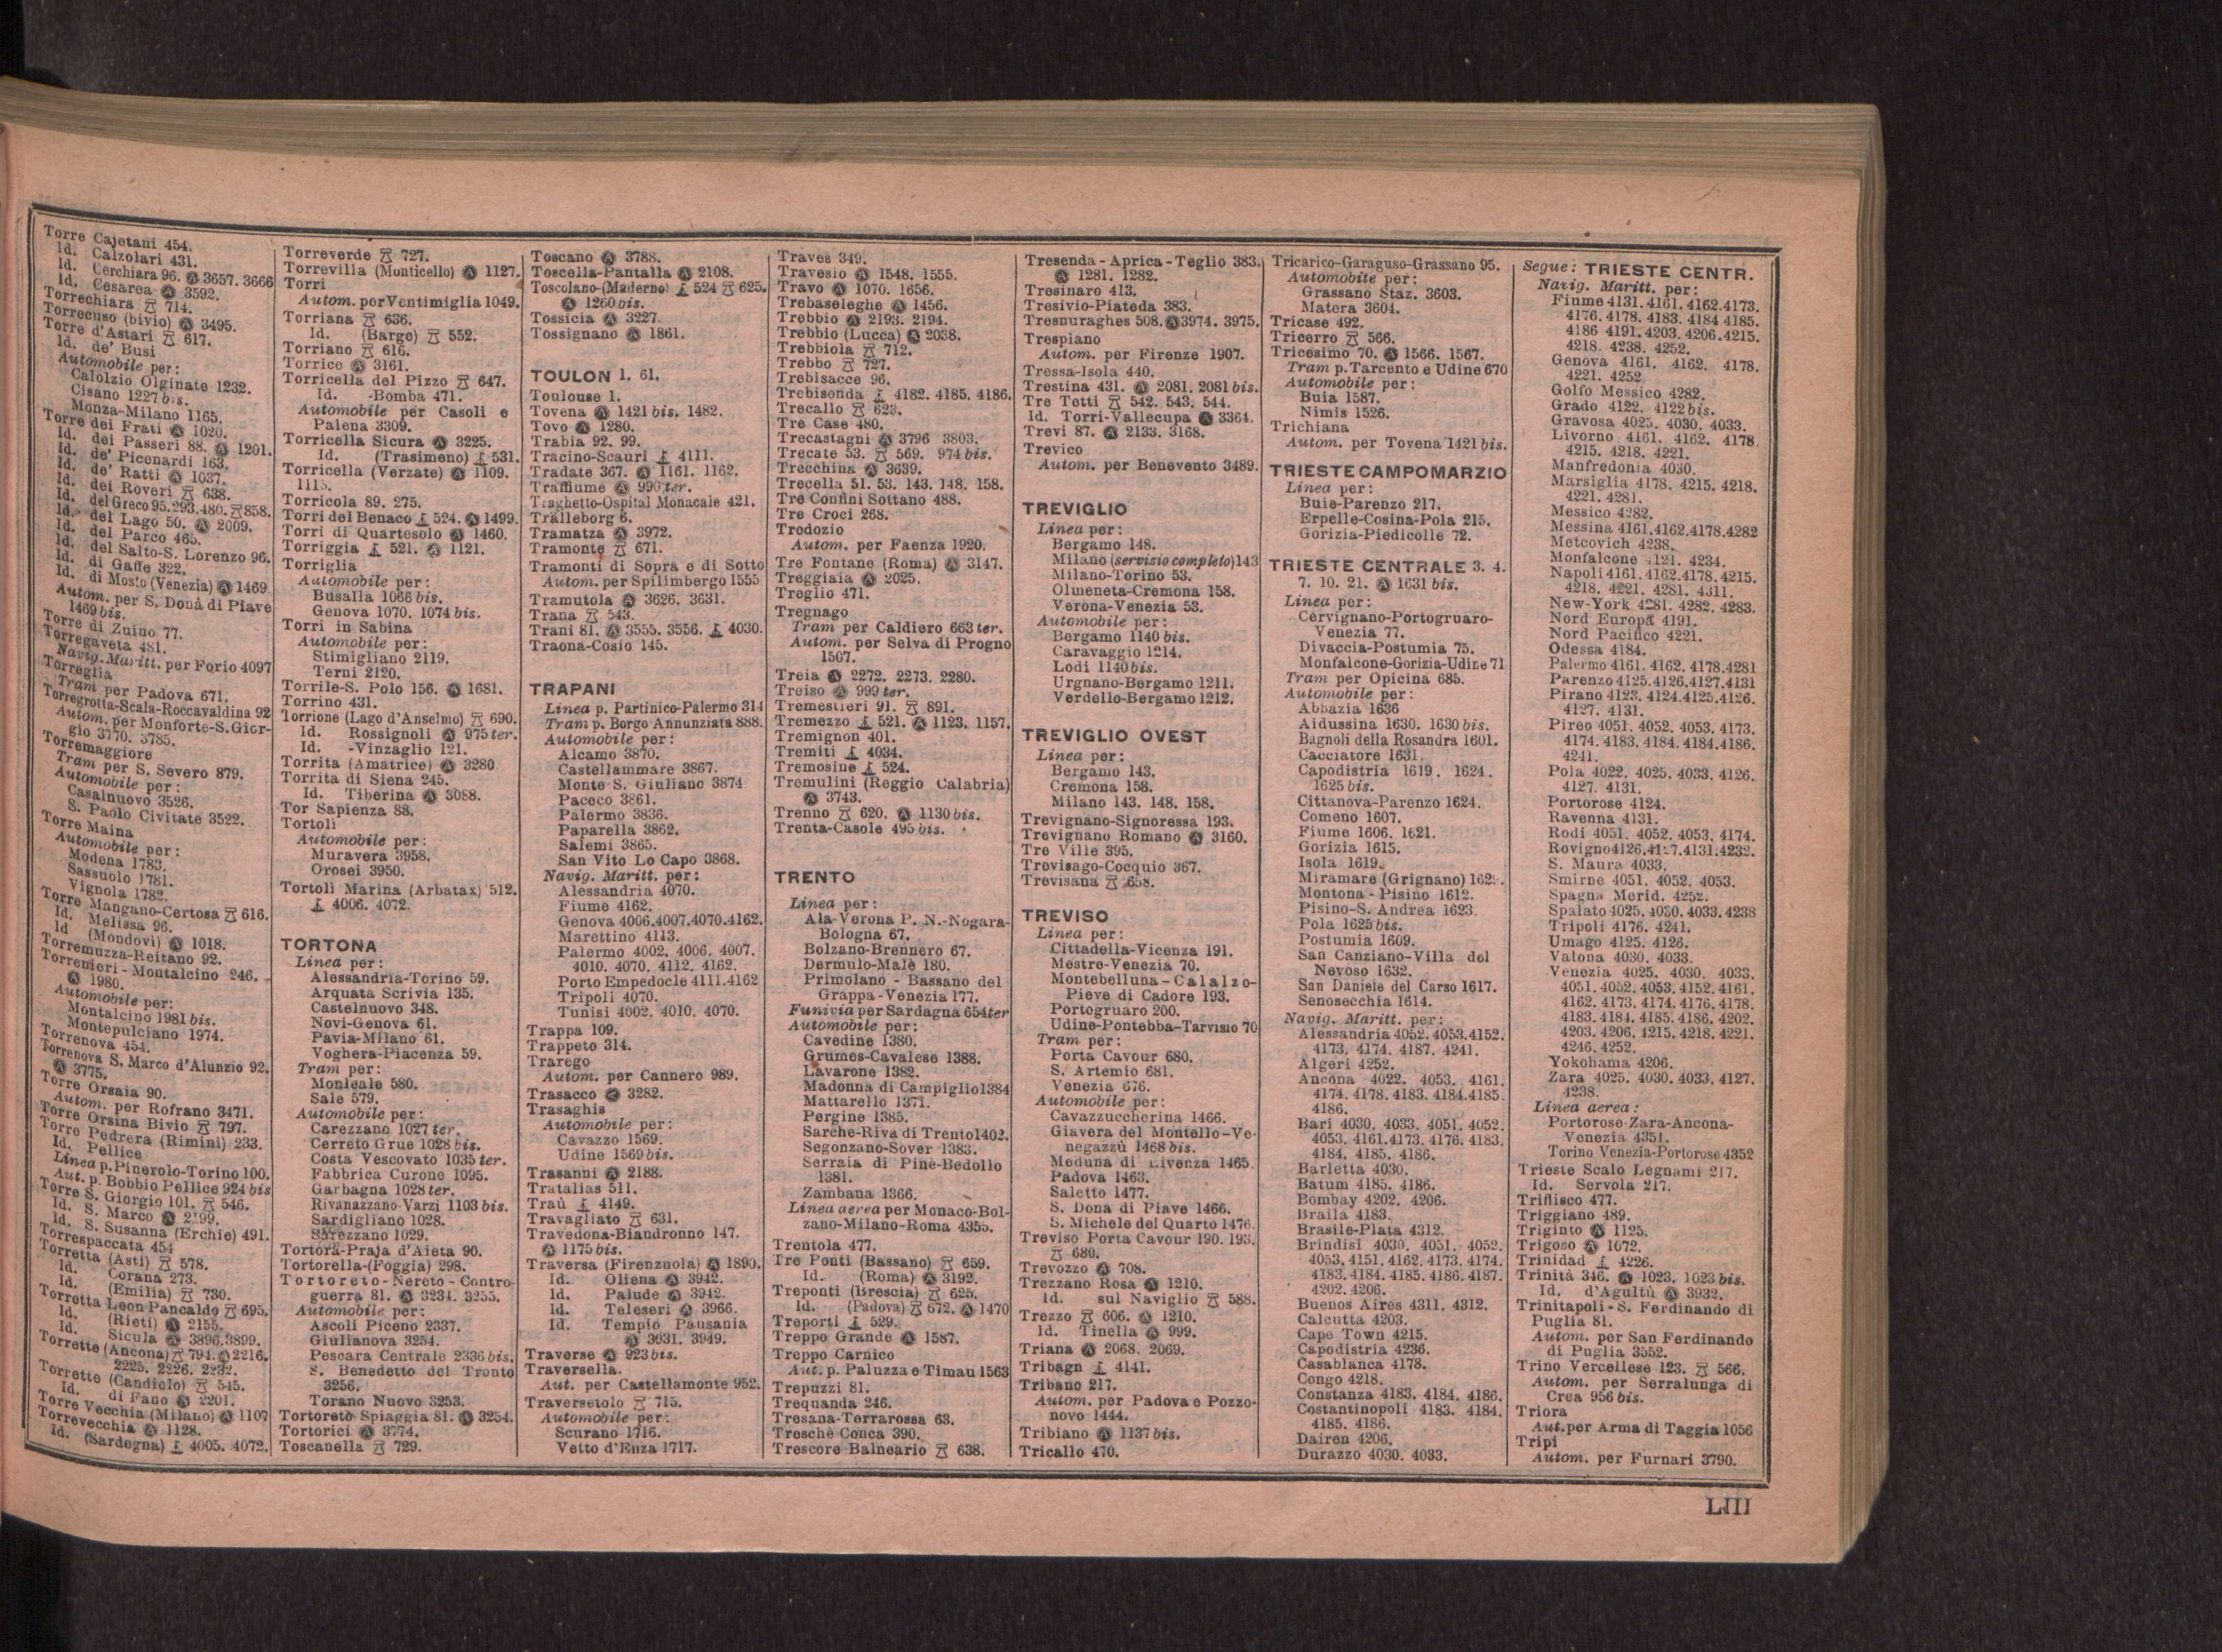 Torre Cajetani 454.
Id. Calzolari 431.
Id. Cerchiara 96. Ⓐ 3657. 3666
Id. Cesarea Ⓐ 3592.
Torrechiara 714.
Torrecuso (bivio) Ⓐ 3495.
Torre d'Astari 617.
Id. de' Busi
Automobile per:
Calolzio Olginate 1232.
Cisano 1227 bis.
Monza-Milano 1165.
Torre dei Frati Ⓐ 1020.
Id. dei Passeri 88. Ⓐ 1201.
Id. de' Picenardi 163.
Id. de' Ratti Ⓐ 1037.
Id. dei Roveri 638.
Id. del Greco 95. 293. 480. 858.
Id. del Lago 50. Ⓐ 2009.
Id. del Parco 465.
Id. del Salto-S. Lorenzo 96.
Id. di Gaffe 322.
Id. di Mosto (Venezia) Ⓐ 1469
Autom. per S. Donà di Piave
1469 bis.
Torre di Zuino 77.
Torregaveta 481.
Navig. Maritt. per Forio 4097
Torreglia
Tram per Padova 671.
Torregrotta-Scala-Roccavaldina 92
Autom. per Monforte-S. Gior-
gio 3770. 3785.
Torremaggiore
Tram per S. Severo 879.
Automobile per:
Casalnuovo 3526.
S. Paolo Civitate 3522.
Torre Maina
Automobile per:
Modena 1783.
Sassuolo 1781.
Vignola 1782.
Torre Mangano-Certosa 616.
Id. Melissa 96.
Id (Mondovì) Ⓐ 1018.
Torremuzza-Reitano 92.
Torrenieri - Montalcino 246.
Ⓐ 1980.
Automobile per:
Montalcino 1981 bis.
Montepulciano 1974.
Torrenova 454.
Torrenova S. Marco d'Alunzio 92.
Ⓐ 3775.
Torre Orsaia 90.
Autom. per Rofrano 3471.
Torre Orsina Bivio 797.
Torre Pedrera (Rimini) 233.
Id. Pellice
Linea p. Pinerolo-Torino 100.
Aut. p. Bobbio Pellice 924 bis
Torre S. Giorgio 101. 546.
Id. S. Marco Ⓐ 2199.
Id. S. Susanna (Erchie) 491.
Torrespaccata 454
Torretta (Asti) 578.
Id. Corana 273.
Id. (Emilia) 730.
Torretta Leon Pancaldo 695.
Id. (Rieti) Ⓐ 2155.
Id. Sicula Ⓐ 3896. 3899.
Torrette (Ancona) 794. Ⓐ 2216.
2225. 2226. 2232.
Torrette (Candiolo) 545.
Id. di Fano Ⓐ 2201.
Torre Vecchia (Milano) Ⓐ 1107
Torrevecchia Ⓐ 1128.
Id. (Sardegna) 4005. 4072.
Torreverde 727.
Torrevilla (Monticello) Ⓐ 1127.
Torri
Autom. per Ventimiglia 1049.
Torriana 636.
Id. (Barge) 552.
Torriano 616.
Torrice Ⓐ 3161.
Torricella del Pizzo 647.
Id. -Bomba 471.
Automobile per Casoli e
Palena 3309.
Torricella Sicura Ⓐ 3225.
Id. (Trasimeno) 531.
Torricella (Verzate) Ⓐ 1109.
1115.
Torricola 89. 275.
Torri del Benaco 524. Ⓐ 1499.
Torri di Quartesolo Ⓐ 1460.
Torriggia 521. Ⓐ 1121.
Torriglia
Automobile per:
Busalla 1066 bis.
Genova 1070. 1074 bis.
Torri in Sabina
Automobile per:
Stimigliano 2119.
Terni 2120.
Torrile-S. Polo 156. Ⓐ 1681.
Torrino 431.
Torrione (Lago d'Anselmo) 690.
Id. Rossignoli Ⓐ 975 ter.
Id. -Vinzaglio 121.
Torrita (Amatrice) Ⓐ 3280
Torrita di Siena 245.
Id. Tiberina Ⓐ 3088.
Tor Sapienza 88.
Tortolì
Automobile per:
Muravera 3958.
Orosei 3950.
Tortolì Marina (Arbatax) 512.
4006. 4072.
TORTONA
Linea per:
Alessandria-Torino 59.
Arquata Scrivia 135.
Castelnuovo 348.
Novi-Genova 61.
Pavia-Milano 61.
Voghera-Piacenza 59.
Tram per:
Monleale 580.
Sale 579.
Automobile per:
Carezzano 1027 ter.
Cerreto Grue 1028 bis.
Costa Vescovato 1035 ter.
Fabbrica Curone 1095.
Garbagna 1028 ter.
Rivanazzano-Varzi 1103 bis.
Sardigliano 1028.
Sarezzano 1029.
Tortora-Praja d'Aieta 90.
Tortorella-(Foggia) 298.
Tortoreto-Nereto - Contro-
guerra 81. Ⓐ 3234. 3255.
Automobile per:
Ascoli Piceno 2337.
Giulianova 3254.
Pescara Centrale 2336 bis.
S. Benedetto del Tronto
3256.
Torano Nuovo 3253.
Tortoreto Spiaggia 81. Ⓐ 3254.
Tortorici Ⓐ 3774.
Toscanella 729.
Toscano Ⓐ 3788.
Toscella-Pantalla Ⓐ 2108.
Toscolano-(Maderno) 524 625.
Ⓐ 1260 bis.
Tossicia Ⓐ 3227.
Tossignano Ⓐ 1861.
TOULON 1. 61.
Toulouse 1.
Tovena Ⓐ 1421 bis. 1482.
Tovo Ⓐ 1280.
Trabia 92. 99.
Tracino-Scauri 4111.
Tradate 367. Ⓐ 1161. 1162.
Traffiume Ⓐ 990 ter.
Traghetto-Ospital Monacale 421.
Trälleborg 6.
Tramatza Ⓐ 3972.
Tramonte 671.
Tramonti di Sopra e di Sotto
Autom. per Spilimbergo 1555
Tramutola Ⓐ 3626. 3631.
Trana 543.
Trani 81. Ⓐ 3555. 3556. 4030.
Traona-Cosio 145.
TRAPANI
Linea p. Partinico-Palermo 314
Tram p. Borgo Annunziata 888.
Automobile per:
Alcamo 3870.
Castellammare 3867.
Monte S. Giuliano 3874
Paceco 3861.
Palermo 3836.
Paparella 3862.
Salemi 3865.
San Vito Lo Capo 3868.
Navig. Maritt. per:
Alessandria 4070.
Fiume 4162.
Genova 4006. 4007. 4070. 4162.
Marettimo 4113.
Palermo 4002. 4006. 4007.
4010. 4070. 4112. 4162.
Porto Empedocle 4111. 4162
Tripoli 4070.
Tunisi 4002. 4010. 4070.
Trappa 109.
Trappeto 314.
Trarego
Autom. per Cannero 989.
Trasacco Ⓐ 3282.
Trasaghis
Automobile per:
Cavazzo 1569.
Udine 1569 bis.
Trasanni Ⓐ 2188.
Tratalias 511.
Traù 4149.
Travagliato 631.
Travedona-Biandronno 147.
Ⓐ 1175 bis.
Traversa (Firenzuola) Ⓐ 1890.
Id. Oliena Ⓐ 3942.
Id. Palude Ⓐ 3942.
Id. Teleseri Ⓐ 3966.
Id. Tempio Pausania
Ⓐ 3931. 3949.
Traverse Ⓐ 923 bis.
Traversella.
Aut. per Castellamonte 952.
Traversetolo 715.
Automobile per:
Scurano 1716.
Vetto d'Enza 1717.
Traves 349.
Travesio Ⓐ 1548. 1555.
Travo Ⓐ 1070. 1656.
Trebaseleghe Ⓐ 1456.
Trebbio Ⓐ 2193. 2194.
Trebbio (Lucca) Ⓐ 2038.
Trebbiola 712.
Trebbo 727.
Trebisacce 96.
Trebisonda 4182. 4185. 4186.
Trecallo 623.
Tre Case 480.
Trecastagni Ⓐ 3796 3803.
Trecate 53. 569. 974 bis.
Trecchina Ⓐ 3639.
Trecella 51. 53. 143. 148. 158.
Tre Confini Sottano 488.
Tre Croci 268.
Tredozio
Autom. per Faenza 1920.
Tre Fontane (Roma) Ⓐ 3147.
Treggiaia Ⓐ 2025.
Treglio 471.
Tregnago
Tram per Caldiero 663 ter.
Autom. per Selva di Progno
1507.
Treia Ⓐ 2272. 2273. 2280.
Treiso Ⓐ 999 ter.
Tremestieri 91. 891.
Tremezzo 521. Ⓐ 1123. 1157.
Tremignon 401.
Tremiti 4034.
Tremosine 524.
Tremulini (Reggio Calabria)
Ⓐ 3743.
Trenno 620. Ⓐ 1130 bis.
Trenta-Casole 495 bis.
TRENTO
Linea per:
Ala-Verona P. N.-Nogara-
Bologna 67.
Bolzano-Brennero 67.
Dermulo-Malè 180.
Primolano - Bassano del
Grappa-Venezia 177.
Funivia per Sardagna 654 ter
Automobile per:
Cavedine 1380.
Grumes-Cavalese 1388.
Lavarone 1382.
Madonna di Campiglio 1384
Mattarello 1371.
Pergine 1385.
Sarche-Riva di Trento 1402.
Segonzano-Sover 1383.
Serraia di Pinè-Bedollo
1381.
Zambana 1366.
Linea aerea per Monaco-Bol-
zano-Milano-Roma 4355.
Trentola 477.
Tre Ponti (Bassano) 659.
Id. (Roma) Ⓐ 3192.
Treponti (Brescia) 625.
Id. (Padova) 672. Ⓐ 1470
Treporti 529.
Treppo Grande Ⓐ 1587.
Treppo Carnico
Aut. p. Paluzza e Timau 1563
Trepuzzi 81.
Trequanda 246.
Tresana-Terrarossa 63.
Treschè Conca 390.
Trescore Balneario 638.
Tresenda - Aprica - Teglio 383.
Ⓐ 1281. 1282.
Tresinaro 413.
Tresivio-Piateda 383.
Tresnuraghes 508. Ⓐ 3974. 3975.
Trespiano
Autom. per Firenze 1907.
Tressa-Isola 440.
Trestina 431. Ⓐ 2081. 2081 bis.
Tre Tetti 542. 543. 544.
Id. Torri-Vallecupa Ⓐ 3364.
Trevi 87. Ⓐ 2133. 3168.
Trevico
Autom. per Benevento 3489.
TREVIGLIO
Linea per:
Bergamo 148.
Milano (servizio completo) 143
Milano-Torino 53.
Olmeneta-Cremona 158.
Verona-Venezia 53.
Automobile per:
Bergamo 1140 bis.
Caravaggio 1214.
Lodi 1140 bis.
Urgnano-Bergamo 1211.
Verdello-Bergamo 1212.
TREVIGLIO OVEST
Linea per:
Bergamo 143.
Cremona 158.
Milano 143. 148. 158.
Trevignano-Signoressa 193.
Trevignano Romano Ⓐ 3160.
Tre Ville 395.
Trevisago-Cocquio 367.
Trevisana 658.
TREVISO
Linea per:
Cittadella-Vicenza 191.
Mestre-Venezia 70.
Montebelluna-Calalzo-
Pieve di Cadore 193.
Portogruaro 200.
Udine-Pontebba-Tarvisio 70
Tram per:
Porta Cavour 680.
S. Artemio 681.
Venezia 676.
Automobile per:
Cavazzuccherina 1466.
Giavera del Montello-Ve-
negazzù 1468 bis.
Meduna di Livenza 1465
Padova 1463.
Saletto 1477.
S. Donà di Piave 1466.
S. Michele del Quarto 1476.
Treviso Porta Cavour 190. 193.
680.
Trevozzo Ⓐ 708.
Trezzano Rosa Ⓐ 1210.
Id. sul Naviglio 588.
Trezzo 606. Ⓐ 1210.
Id. Tinella Ⓐ 999.
Triana Ⓐ 2068. 2069.
Tribagn 4141.
Tribano 217.
Autom. per Padova e Pozzo-
novo 1444.
Tribiano Ⓐ 1137 bis.
Tricallo 470.
Tricarico-Garaguso-Grassano 95.
Automobile per:
Grassano Staz. 3603.
Matera 3604.
Tricase 492.
Tricerro 566.
Tricesimo 70. Ⓐ 1566. 1567.
Tram p. Tarcento e Udine 670
Automobile per:
Buia 1587.
Nimis 1526.
Trichiana
Autom. per Tovena 1421 bis.
TRIESTE CAMPOMARZIO
Linea per:
Buie-Parenzo 217.
Erpelle-Cosina-Pola 215.
Gorizia-Piedicolle 72.
TRIESTE CENTRALE 3. 4.
7. 10. 21. Ⓐ 1631 bis.
Linea per:
Cervignano-Portogruaro-
Venezia 77.
Divaccia-Postumia 75.
Monfalcone-Gorizia-Udine 71
Tram per Opicina 685.
Automobile per:
Abbazia 1636
Aidussina 1630. 1630 bis.
Bagnoli della Rosandra 1601.
Cacciatore 1631.
Capodistria 1619. 1624.
1625 bis.
Cittanova-Parenzo 1624.
Comeno 1607.
Fiume 1606. 1621.
Gorizia 1615.
Isola 1619.
Miramare (Grignano)
Montona - Pisino 1612.
Pisino-S. Andrea 1623.
Pola 1625 bis.
Postumia 1609.
San Canziano-Villa del
Nevoso 1632.
San Daniele del Carso 1617.
Senosecchia 1614.
Navig. Maritt. per:
Alessandria 4052. 4053. 4152.
4173. 4174. 4187. 4241.
Algeri 4252.
Ancona 4022. 4053. 4161.
4174. 4178. 4183. 4184. 4185.
4186.
Bari 4030. 4033. 4051. 4052.
4053. 4161. 4173. 4176. 4183.
4184. 4185. 4186.
Barletta 4030.
Batum 4185. 4186.
Bombay 4202. 4206.
Braila 4183.
Brasile-Plata 4312.
Brindisi 4030. 4051. 4052.
4053. 4151. 4162. 4173. 4174.
4183. 4184. 4185. 4186. 4187.
4202. 4206.
Buenos Aires 4311. 4312.
Calcutta 4203.
Cape Town 4215.
Capodistria 4236.
Casablanca 4178.
Congo 4218.
Constanza 4183. 4184. 4186.
Costantinopoli 4183. 4184.
4185. 4186.
Dairen 4206.
Durazzo 4030. 4033.
Segue: TRIESTE CENTR.
Navig. Maritt. per:
Fiume 4131. 4161. 4162. 4173.
4176. 4178. 4183. 4184 4185.
4186 4191. 4203. 4206. 4215.
4218. 4238. 4252.
Genova 4161. 4162. 4178.
4221. 4252
Golfo Messico 4282.
Grado 4122. 4122 bis.
Gravosa 4025. 4030. 4033.
Livorno 4161. 4162. 4178.
4215. 4218. 4221.
Manfredonia 4030.
Marsiglia 4178. 4215. 4218.
4221. 4281.
Messico 4282.
Messina 4161. 4162. 4178. 4282
Metcovich 4238.
Monfalcone 4121. 4234.
Napoli 4161. 4162. 4178. 4215.
4218. 4221. 4281. 4311.
New-York 4281. 4282. 4283.
Nord Europa 4191.
Nord Pacifico 4221.
Odessa 4184.
Palermo 4161. 4162. 4178. 4281
Parenzo 4125. 4126. 4127. 4131
Pirano 4123. 4124. 4125. 4126.
4127. 4131.
Pireo 4051. 4052. 4053. 4173.
4174. 4183. 4184. 4184. 4186.
4241.
Pola 4022. 4025. 4033. 4126.
4127. 4131.
Portorose 4124.
Ravenna 4131.
Rodi 4051. 4052. 4053. 4174.
Rovigno 4126. 4127. 4131. 4232.
S. Maura 4033.
Smirne 4051. 4052. 4053.
Spagna Merid. 4252.
Spalato 4025. 4030. 4033. 4238
Tripoli 4176. 4241.
Umago 4125. 4126.
Valona 4030. 4033.
Venezia 4025. 4030. 4033.
4051. 4052. 4053. 4152. 4161.
4162. 4173. 4174. 4176. 4178.
4183. 4184. 4185. 4186. 4202.
4203. 4206. 4215. 4218. 4221.
4246. 4252.
Yokohama 4206.
Zara 4025. 4030. 4033. 4127.
4238.
Linea aerea:
Portorose-Zara-Ancona-
Venezia 4351.
Torino Venezia-Portorose 4352
Trieste Scalo Legnami 217.
Id. Servola 217.
Triflisco 477.
Triggiano 489.
Triginto Ⓐ 1125.
Trigoso Ⓐ 1672.
Trinidad 4226.
Trinità 346. Ⓐ 1023. 1023 bis.
Id. d'Agultù Ⓐ 3932.
Trinitapoli - S. Ferdinando di
Puglia 81.
Autom. per San Ferdinando
di Puglia 3552.
Trino Vercellese 123. 566.
Autom. per Serralunga di
Crea 956 bis.
Triora
Aut. per Arma di Taggia 1056
Tripi
Autom. per Furnari 3790.
LIII